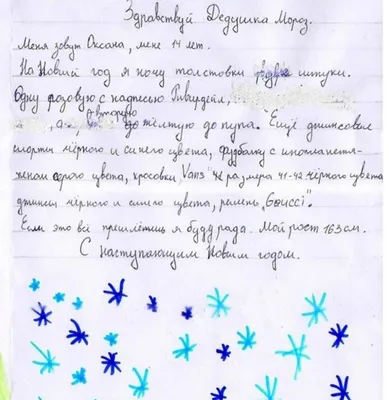 Здравствуй Дедушка Мороз.
Меня зовут Оксана, мне 14 лет.
На Новый год я хочу толстовки две штуки.
Одну розовую с надписью Ривердейл,
а вторую
жёлтую до пупа. Ещё джинсовые
шорты чёрного и синего цвета, футболку с инопланетя-
нином серого цвета, кросовки Vans 42 размера 41-42 чёрного цвета
джинсы чёрного и синего цвета, ремень „Gucci".
Если это всё пришлёшь я буду рада. Мой рост 163 см.
С наступающим Новым годом.